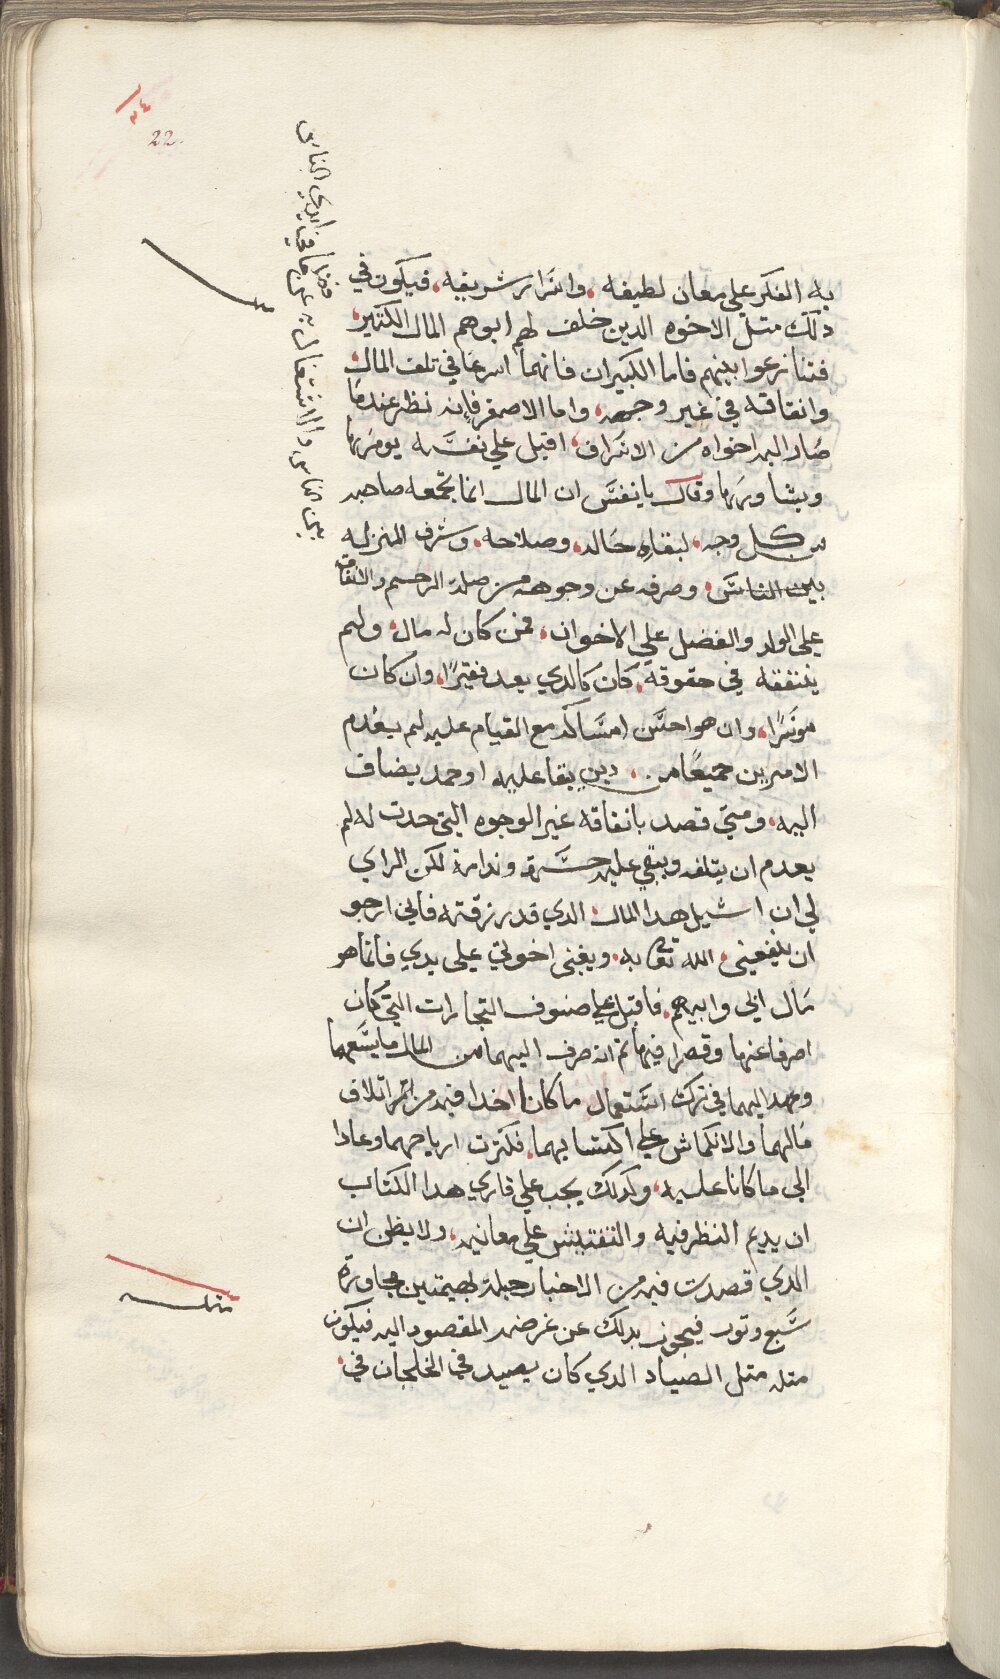 ٢٤
22.
فضلا عما في ايدي الناس
بين الناس والاشتغال به عن
به الفكر علي معان لطيفه، واسرار شريفه، فيكون في
ذلك متل الاخوه الدين خلف لهم ابوهم المال الكتير،
فتنازعوا بينهم فاما الكبيران فانهما اسرعا في تلف المال
وانفاقه في غير وجهه، واما الاصغر فانه نظر عندما
صار اليه اخواه من الاسراف، اقبل علي نفسه يومرها
ويشاورها وقال يا نفس ان المال انما يجمعه صاحبه
من كل وجه، لبقاء حاله، وصلاحه، وشرف المنزله
بين الناس، وصرفه عن وجوهه من صلة الرحم والانفاق
علي الولد والفضل علي الاخوان، فمن كان له مال، ولم
ينفقه في حقوقه، كان كالدي يعد فقيرًا، وان كان
موسرًا، وان هو احسن امساكه مع القيام عليه لم يعدم
الامرين جميعًا من دين يبقا عليه او حمد يضاف
اليه، ومتي قصد بانفاقه غير الوجوه التي حدت له لم
يعدم ان يتلفه ويبقي عليه حسرة وندامة لكن الراي
لي ان اشيل هدا المال، الدي قد رزقته فاني ارجو
ان ينفعني، الله تعا به، ويغني اخوتي علي يدي فانما هو
مال ابي وابيهم، فاقبل علي صنوف التجارات التي كان
اصرفا عنها وقصرا فيها تم انه صرف اليهما من المال ما يسعهما
وعهد اليهما في ترك استعمال ما كانا اخدا فيه من امر اتلاف
مالهما والانكماش علي اكتسابهما، فكترت ارباحهما وعادا
الي ما كانا عليه، وكدلك يجب علي قاري هدا الكتاب
ان يديم النظر فيه والتفتيش علي معانيه، ولا يظن ان
الدي قصدت فيه من الاخبار حيلة بهيمتين محاورة
سبع وتور فيجوز بدلك عن غرضه المقصود اليه فيكون
متله متل الصياد الدي كان يصيد في الخلجان في،
متله